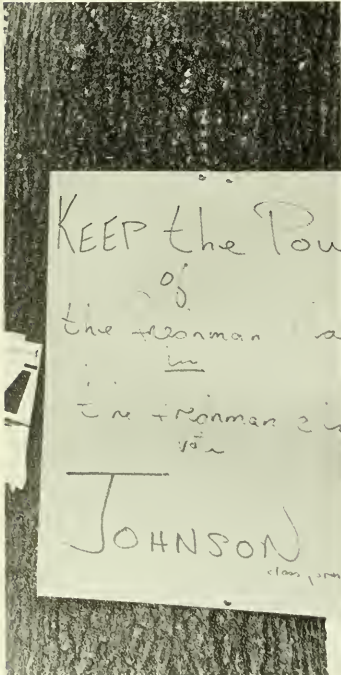 KEEP the Pow
of
the freshman
in
the freshman
vote
JOHNSON